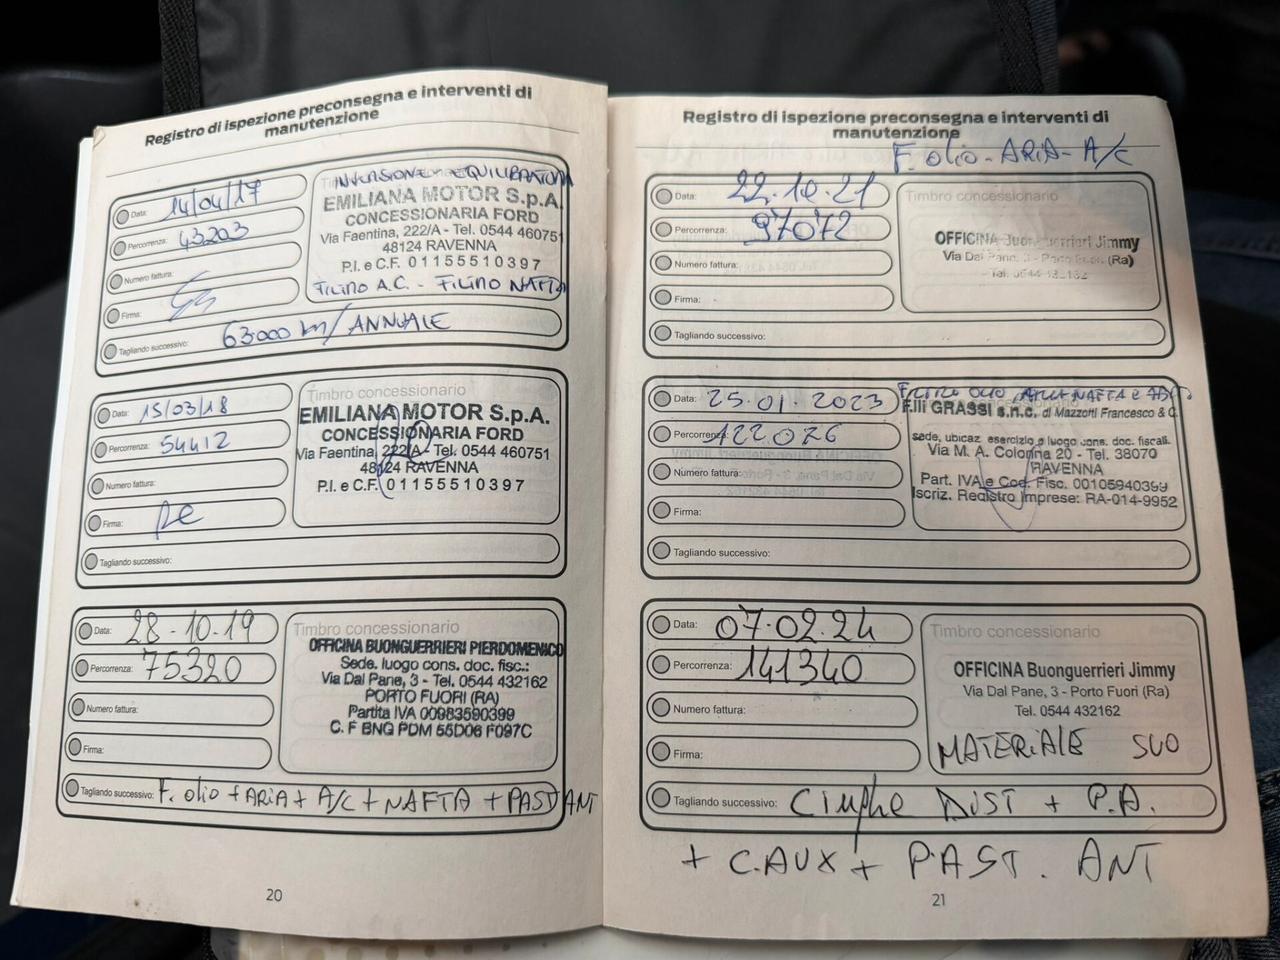 Registro di ispezione preconsegna e interventi di
manutenzione
Data: 14/04/17
Percorrenza: 43203
Numero fattura:
Firma:
INVERSIONE EQUILIBRATURA
EMILIANA MOTOR S.p.A.
CONCESSIONARIA FORD
Via Faentina, 222/A - Tel. 0544 460751
48124 RAVENNA
P.I. e C.F. 01155510397
FILTRO A.C. - FILTRO NAFTA
Tagliando successivo: 63000 km/ANNUALE
Data: 15/03/18
Percorrenza: 54412
Numero fattura:
Firma:
Timbro concessionario
EMILIANA MOTOR S.p.A.
CONCESSIONARIA FORD
Via Faentina, 222/A - Tel. 0544 460751
48124 RAVENNA
P.I. e C.F. 01155510397
Tagliando successivo:
Data: 28-10-19
Percorrenza: 75320
Numero fattura:
Firma:
Timbro concessionario
OFFICINA BUONGUERRIERI PIERDOMENICO
Sede. luogo cons. doc. fisc.:
Via Dal Pane, 3 - Tel. 0544 432162
PORTO FUORI (RA)
Partita IVA 00983590399
C. F BNG PDM 55D06 F097C
Tagliando successivo: F. olio + ARIA + A/C + NAFTA + PAST ANT
20
Registro di ispezione preconsegna e interventi di
manutenzione
F. olio - ARIA - A/C
Data: 22.10.21
Percorrenza: 97072
Numero fattura:
Firma:
Timbro concessionario
OFFICINA Buonguerrieri Jimmy
Via Dal Pane, 3 - Porto Fuori (Ra)
Tel. 0544 432162
Tagliando successivo:
Data: 25.01.2023
Percorrenza: 122026
Numero fattura:
Firma:
FILTRO OLIO ARIA NAFTA E
F.lli GRASSI s.n.c. di Mazzotti Francesco & C.
sede, ubicaz. esercizio e luogo cons. doc. fiscali.
Via M. A. Colonna 20 - Tel. 38070
RAVENNA
Part. IVA e Cod. Fisc. 00105940399
Iscriz. Registro Imprese: RA-014-9952
Tagliando successivo:
Data: 07.02.24
Percorrenza: 141340
Numero fattura:
Firma:
Timbro concessionario
OFFICINA Buonguerrieri Jimmy
Via Dal Pane, 3 - Porto Fuori (Ra)
Tel. 0544 432162
MATERIALE SUO
Tagliando successivo: Cinghe DIST + P.A.
+ C.AUX + PAST. ANT
21